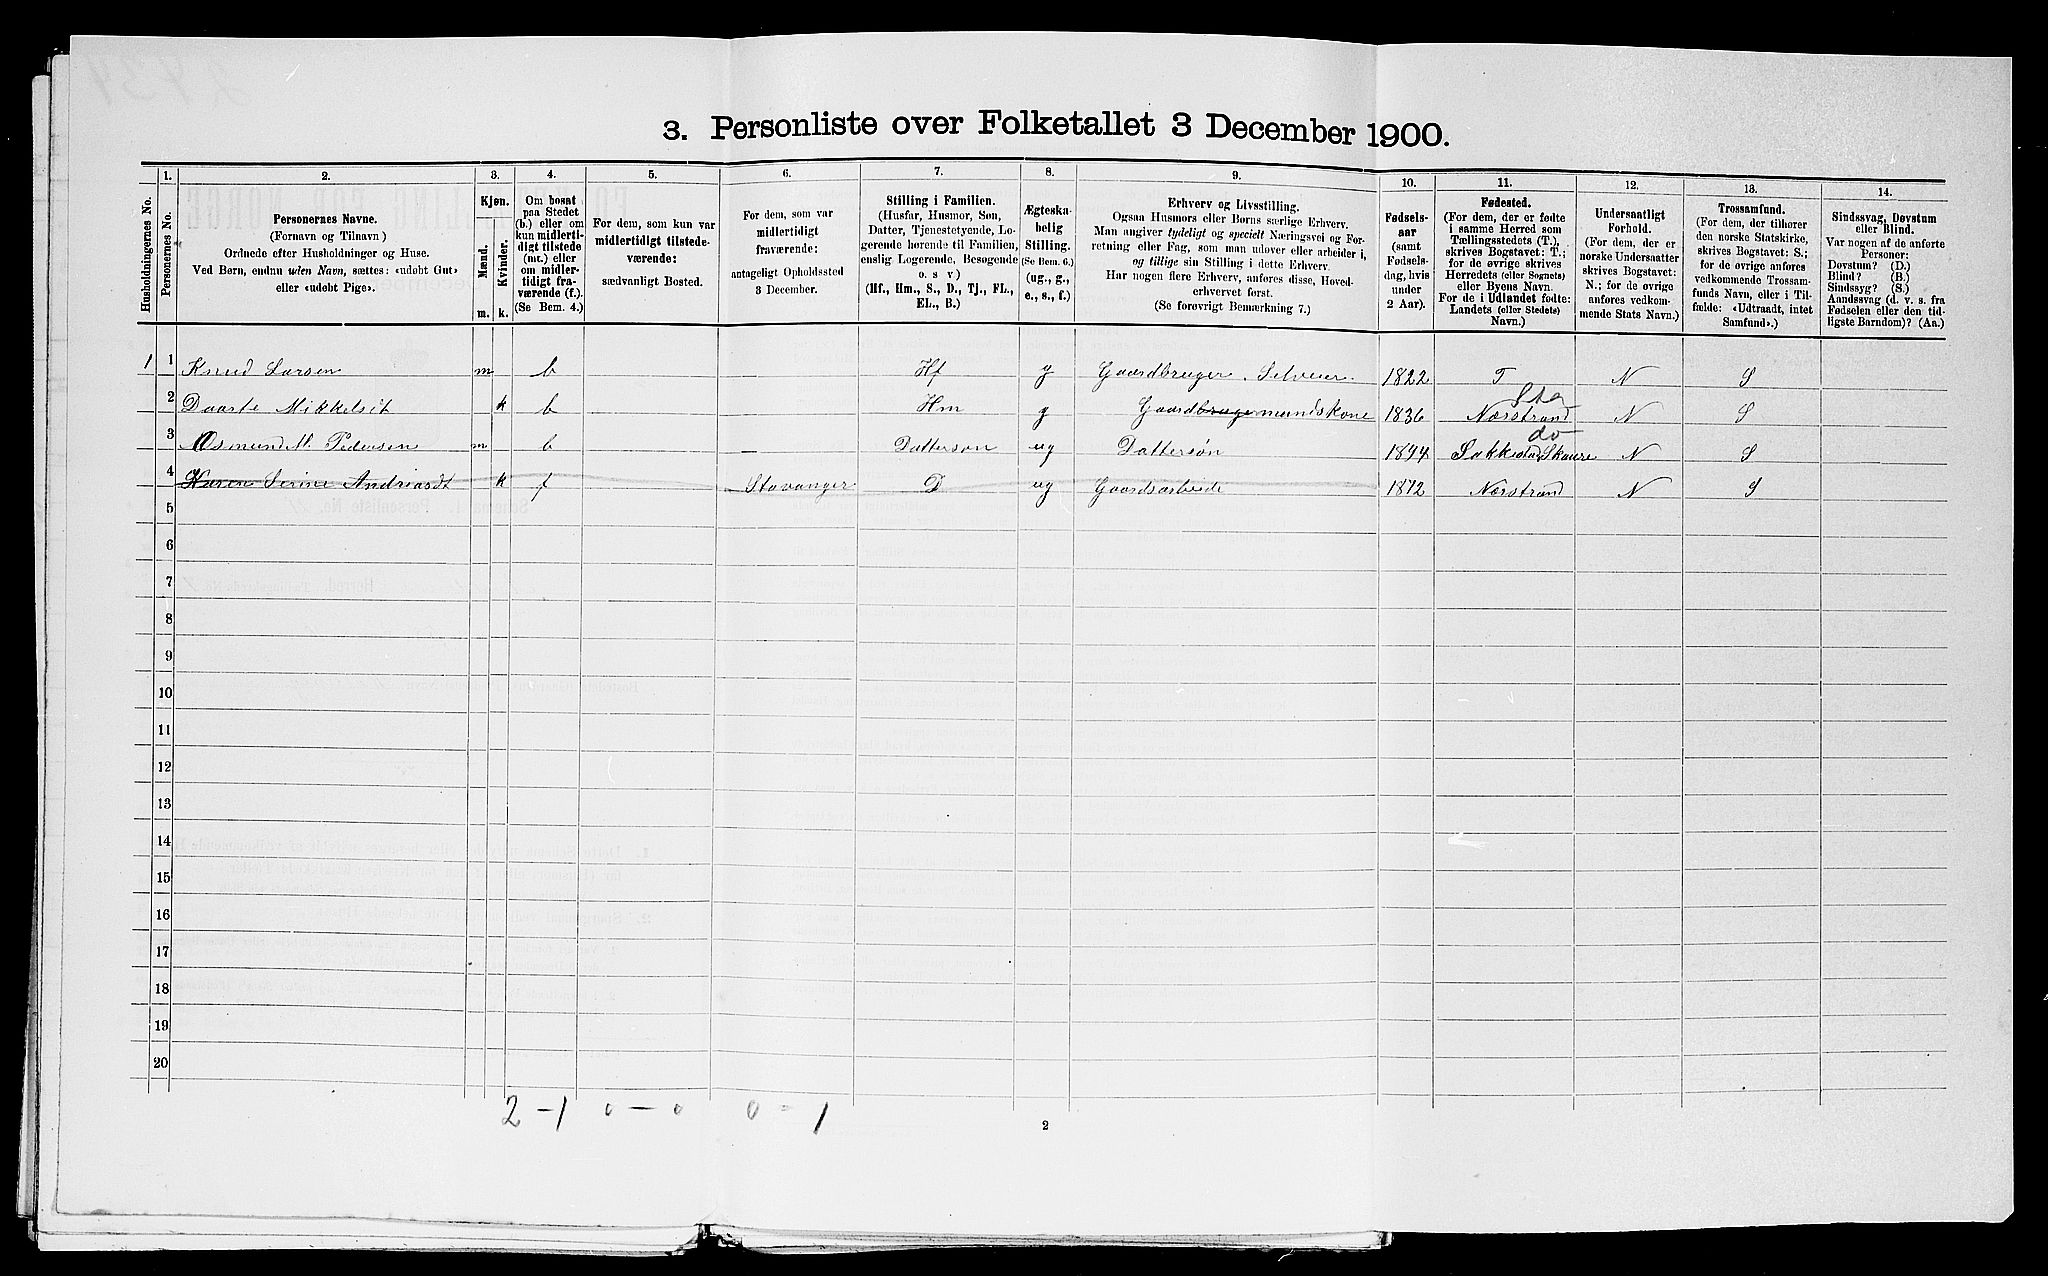 3. Personliste over Folketallet 3 December 1900.
Husholdningernes No.
1. Personernes No.
2. Personernes Navne. (Fornavn og Tilnavn) Ordnede efter Husholdninger og Huse. Ved Børn, endnu uden Navn, sættes: «udøbt Gut» eller «udøbt Pige».
3. Kjøn. Mænd. m. Kvinder. k.
4. Om bosat paa Stedet (b.) eller om kun midlertidigt tilstede (mt.) eller om midlertidigt fraværende (f.). (Se Bem. 4.)
5. For dem, som kun var midlertidigt tilstedeværende: sædvanligt Bosted.
6. For dem, som var midlertidigt fraværende: antageligt Opholdssted 3 December.
7. Stilling i Familien. (Husfar, Husmor, Søn, Datter, Tjenestetyende, Logerende hørende til Familien, enslig Logerende, Besøgende o. s v) (Hf., Hm., S., D., Tj., FL., EL., B.)
8. Ægteskabelig Stilling. (Se Bem. 6.) (ug., g., e., s., f.)
9. Erhverv og Livsstilling. Ogsaa Husmors eller Børns særlige Erhverv. Man angiver tydeligt og specielt Næringsvei og Forretning eller Fag, som man udøver eller arbeider i, og tillige sin Stilling i dette Erhverv. Har nogen flere Erhverv, anføres disse, Hovederhvervet først. (Se forøvrigt Bemærkning 7.)
10. Fødselsaar (samt Fødselsdag, hvis under 2 Aar).
11. Fødested. (For dem, der er fødte i samme Herred som Tællingsstedets (T.), skrives Bogstavet: T.; for de øvrige skrives Herredets (eller Sognets) eller Byens Navn. For de i Udlandet fødte: Landets (eller Stedets) Navn.)
12. Undersaatligt Forhold. (For dem, der er norske Undersaatter skrives Bogstavet: N.; for de øvrige anføres vedkommende Stats Navn.)
13. Trossamfund. (For dem, der tilhører den norske Statskirke, skrives Bogstavet: S.; for de øvrige anføres vedkommende Trossamfunds Navn, eller i Tilfælde: «Udtraadt, intet Samfund».)
14. Sindssvag, Døvstum eller Blind. Var nogen af de anførte Personer: Døvstum? (D.) Blind? (B.) Sindssyg? (S.) Aandssvag (d. v. s. fra Fødselen eller den tidligste Barndom)? (Aa.)
1 1 Knud Larsen m b Hf g Gaardbruger Selveier 1822 T N S
Sta
2 Daarte Mikkelsdt k b Hm g Gaardbrugemandskone 1836 Nærstrand N S
do
3 Osmund M. Pedersen m b Dattersøn ug Dattersøn 1894 Skaare N S
4 Karen Serine Andreasdt k f Stavanger D ug Gaardsarbeide 1872 Nærstrand N S
5
6
7
8
9
10
11
12
13
14
15
16
17
18
19
20
2 - 1 0 - 0 0 - 1
2